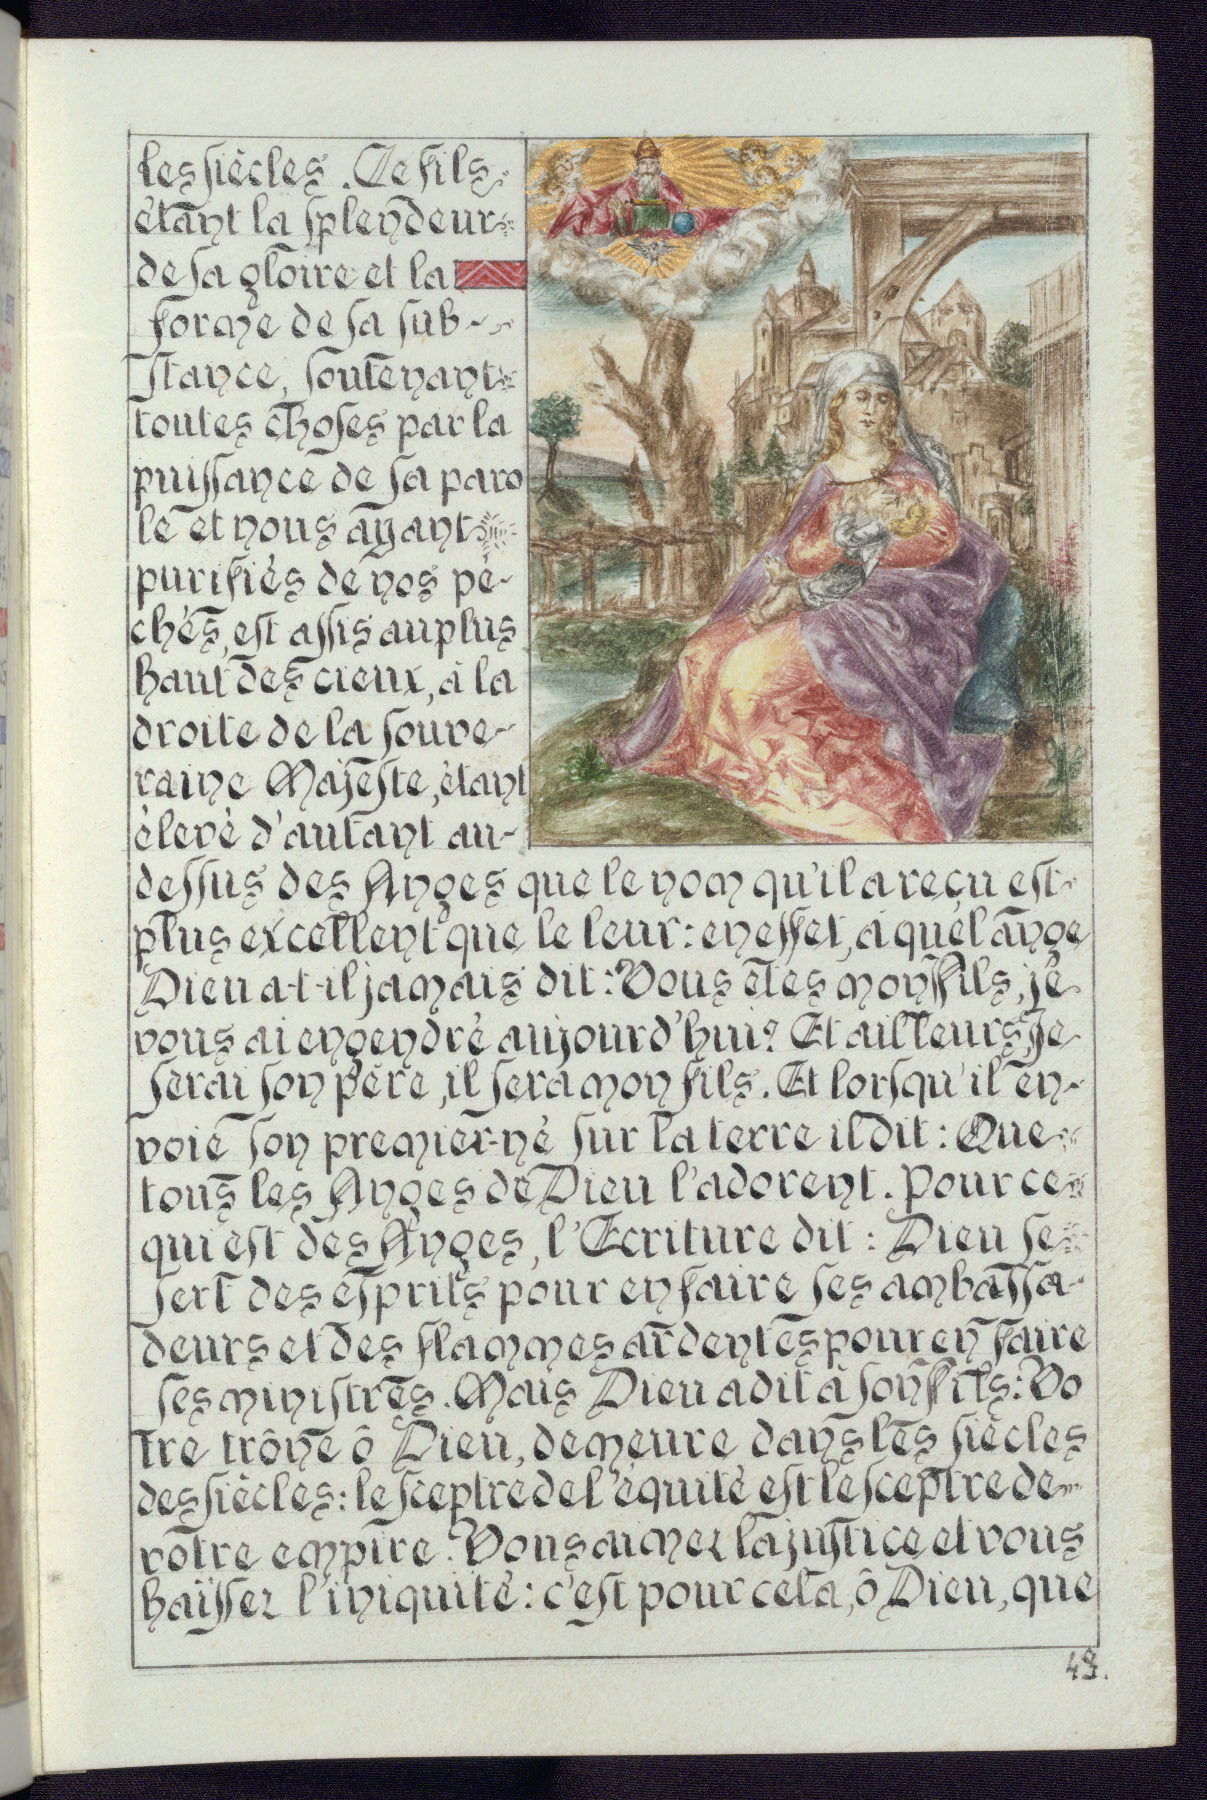 les siècles. Ce fils
étant la splendeur
de sa gloire et la
forme de sa sub-
stance, soutenant
toutes choses par la
puissance de sa paro
le et nous ayant
purifiés de nos pé-
chés, est assis au plus
haut des cieux, à la
droite de la souve-
raine Majesté, étant
élevé d'autant au-
dessus des Anges que le nom qu'il a reçu est
plus excellent que le leur: en effet, à quel ange
Dieu a-t-il jamais dit: Vous êtes mon Fils, je
vous ai engendré aujourd'hui? Et ailleurs, Je
serai son père, il sera mon fils. Et lorsqu'il en-
voie son premier-né sur la terre il dit: Que
tous les Anges de Dieu l'adorent. Pour ce
qui est des Anges, l'Ecriture dit: Dieu se
sert des esprits pour en faire ses ambassa-
deurs et des flammes ardentes pour en faire
ses ministres. Mais Dieu a dit à son Fils: Vo
tre trône ô Dieu, demeure dans les siècles
des siècles: le sceptre de l'équité est le sceptre de
votre empire. Vous aimez la justice et vous
haïssez l'iniquité: c'est pour cela, ô Dieu, que
49.